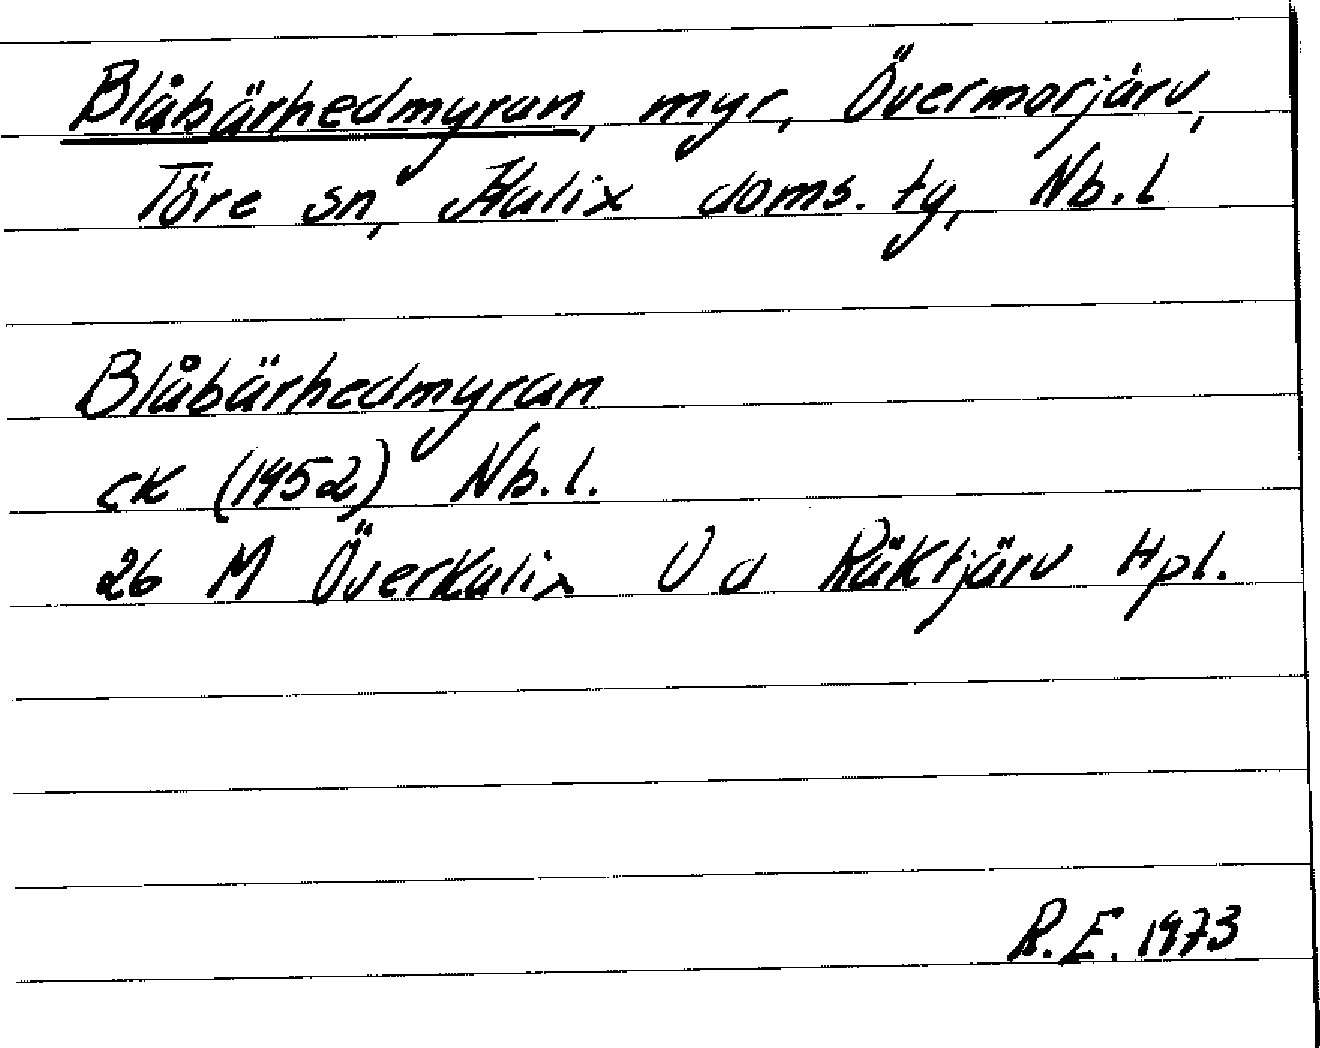 Blåbärhedmyran, myr, Övermorjärv,
Töre sn, Kalix doms. tg, Nb.l
Blåbärhedmyran
CK (1952) Nb.l.
26 M Överkalix Ö d Räktjärv Hpl.
R.E. 1973